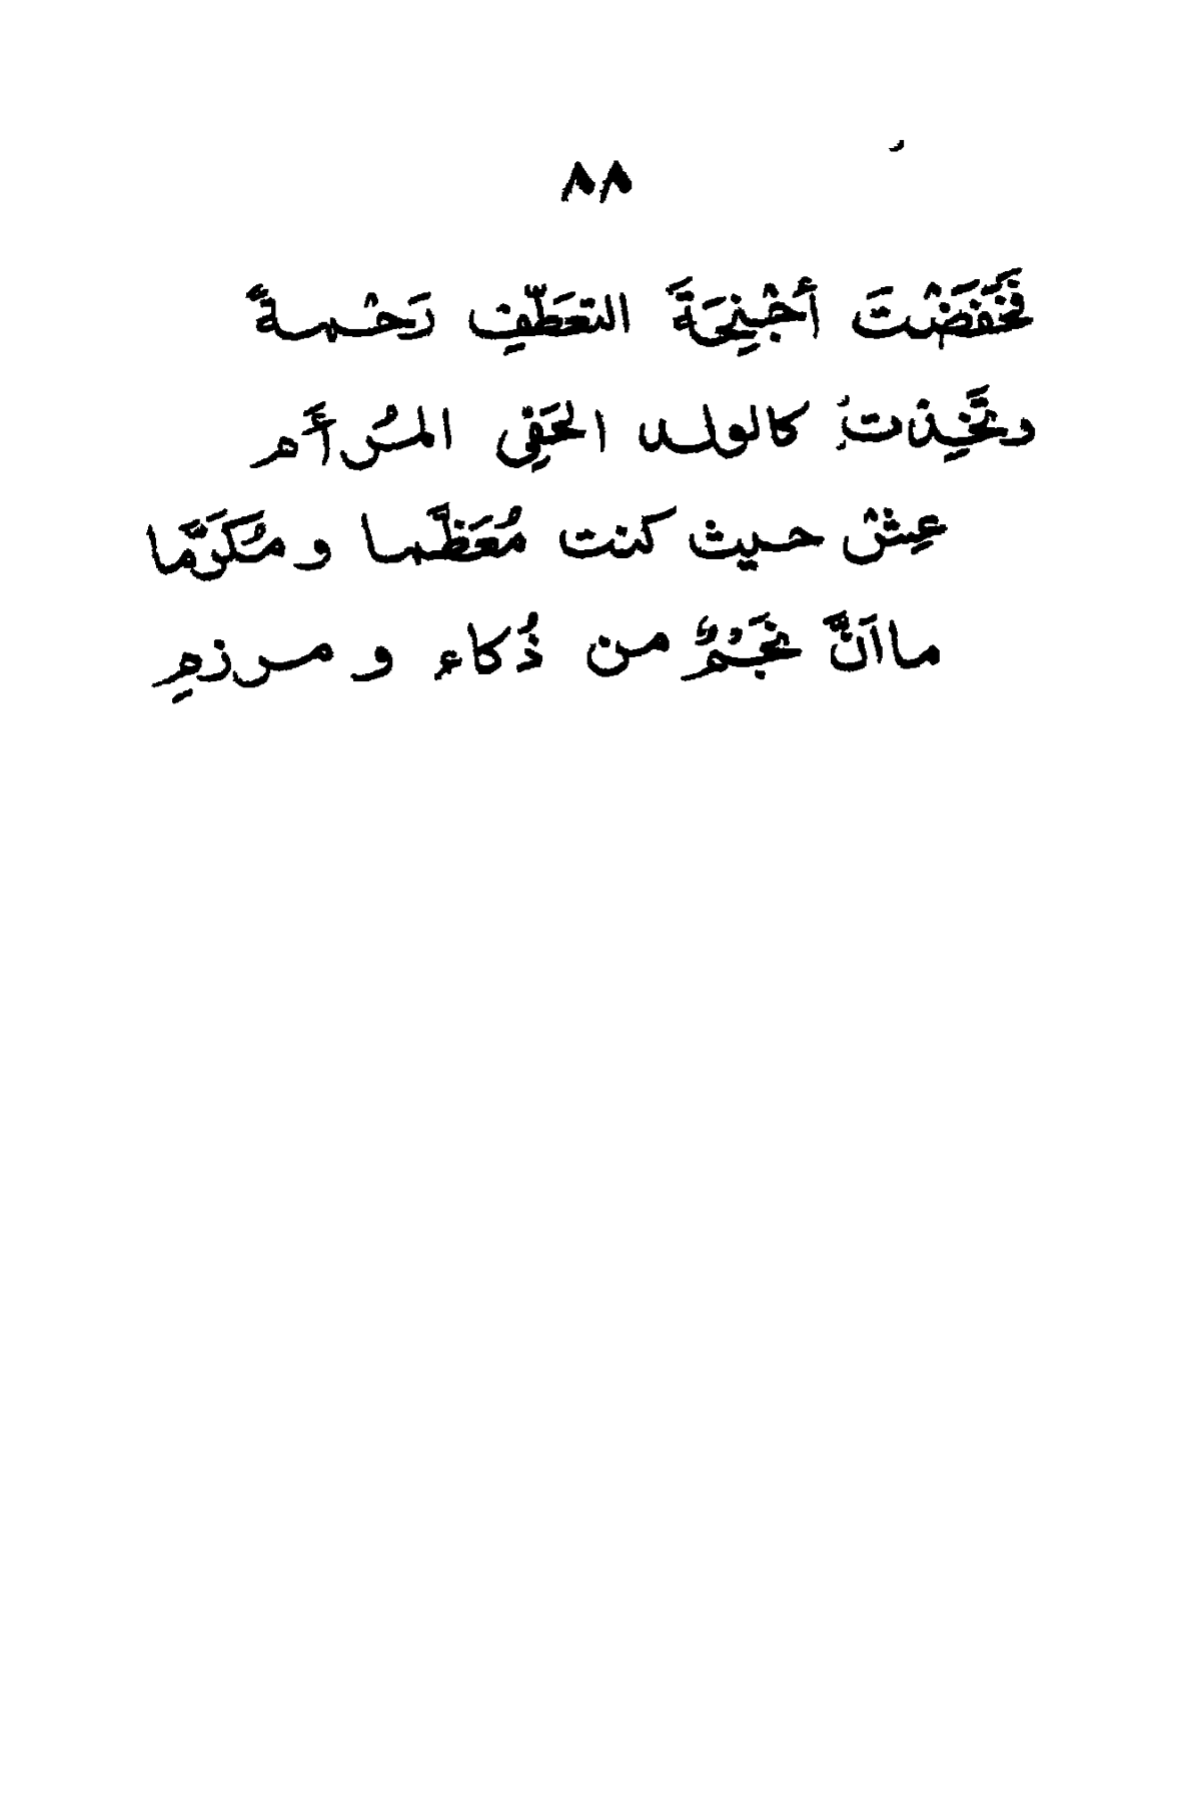 ٨٨
فَخَفَضْتَ أَجْنِحَةَ التعَطّفِ رَحْمةً
وتَخِذْتُ كالولد الحَفِى المُرأَم
عِشْ حيث كنت مُعَظَّما ومُكَرَّما
ما اَنَّ نَجْمٌ من ذُكاء ومرزمِ